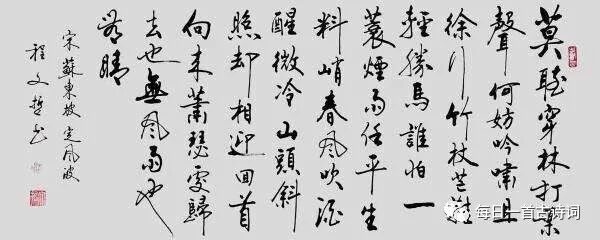 莫聽穿林打葉
聲何妨吟嘯且
徐行竹杖芒鞋
輕勝馬誰怕一
蓑煙雨任平生
料峭春風吹酒
醒微冷山頭斜
照却相迎回首
向來蕭瑟處歸
去也無風雨也
無晴
宋蘇東坡定風波
程文哲书
每日一首古诗词